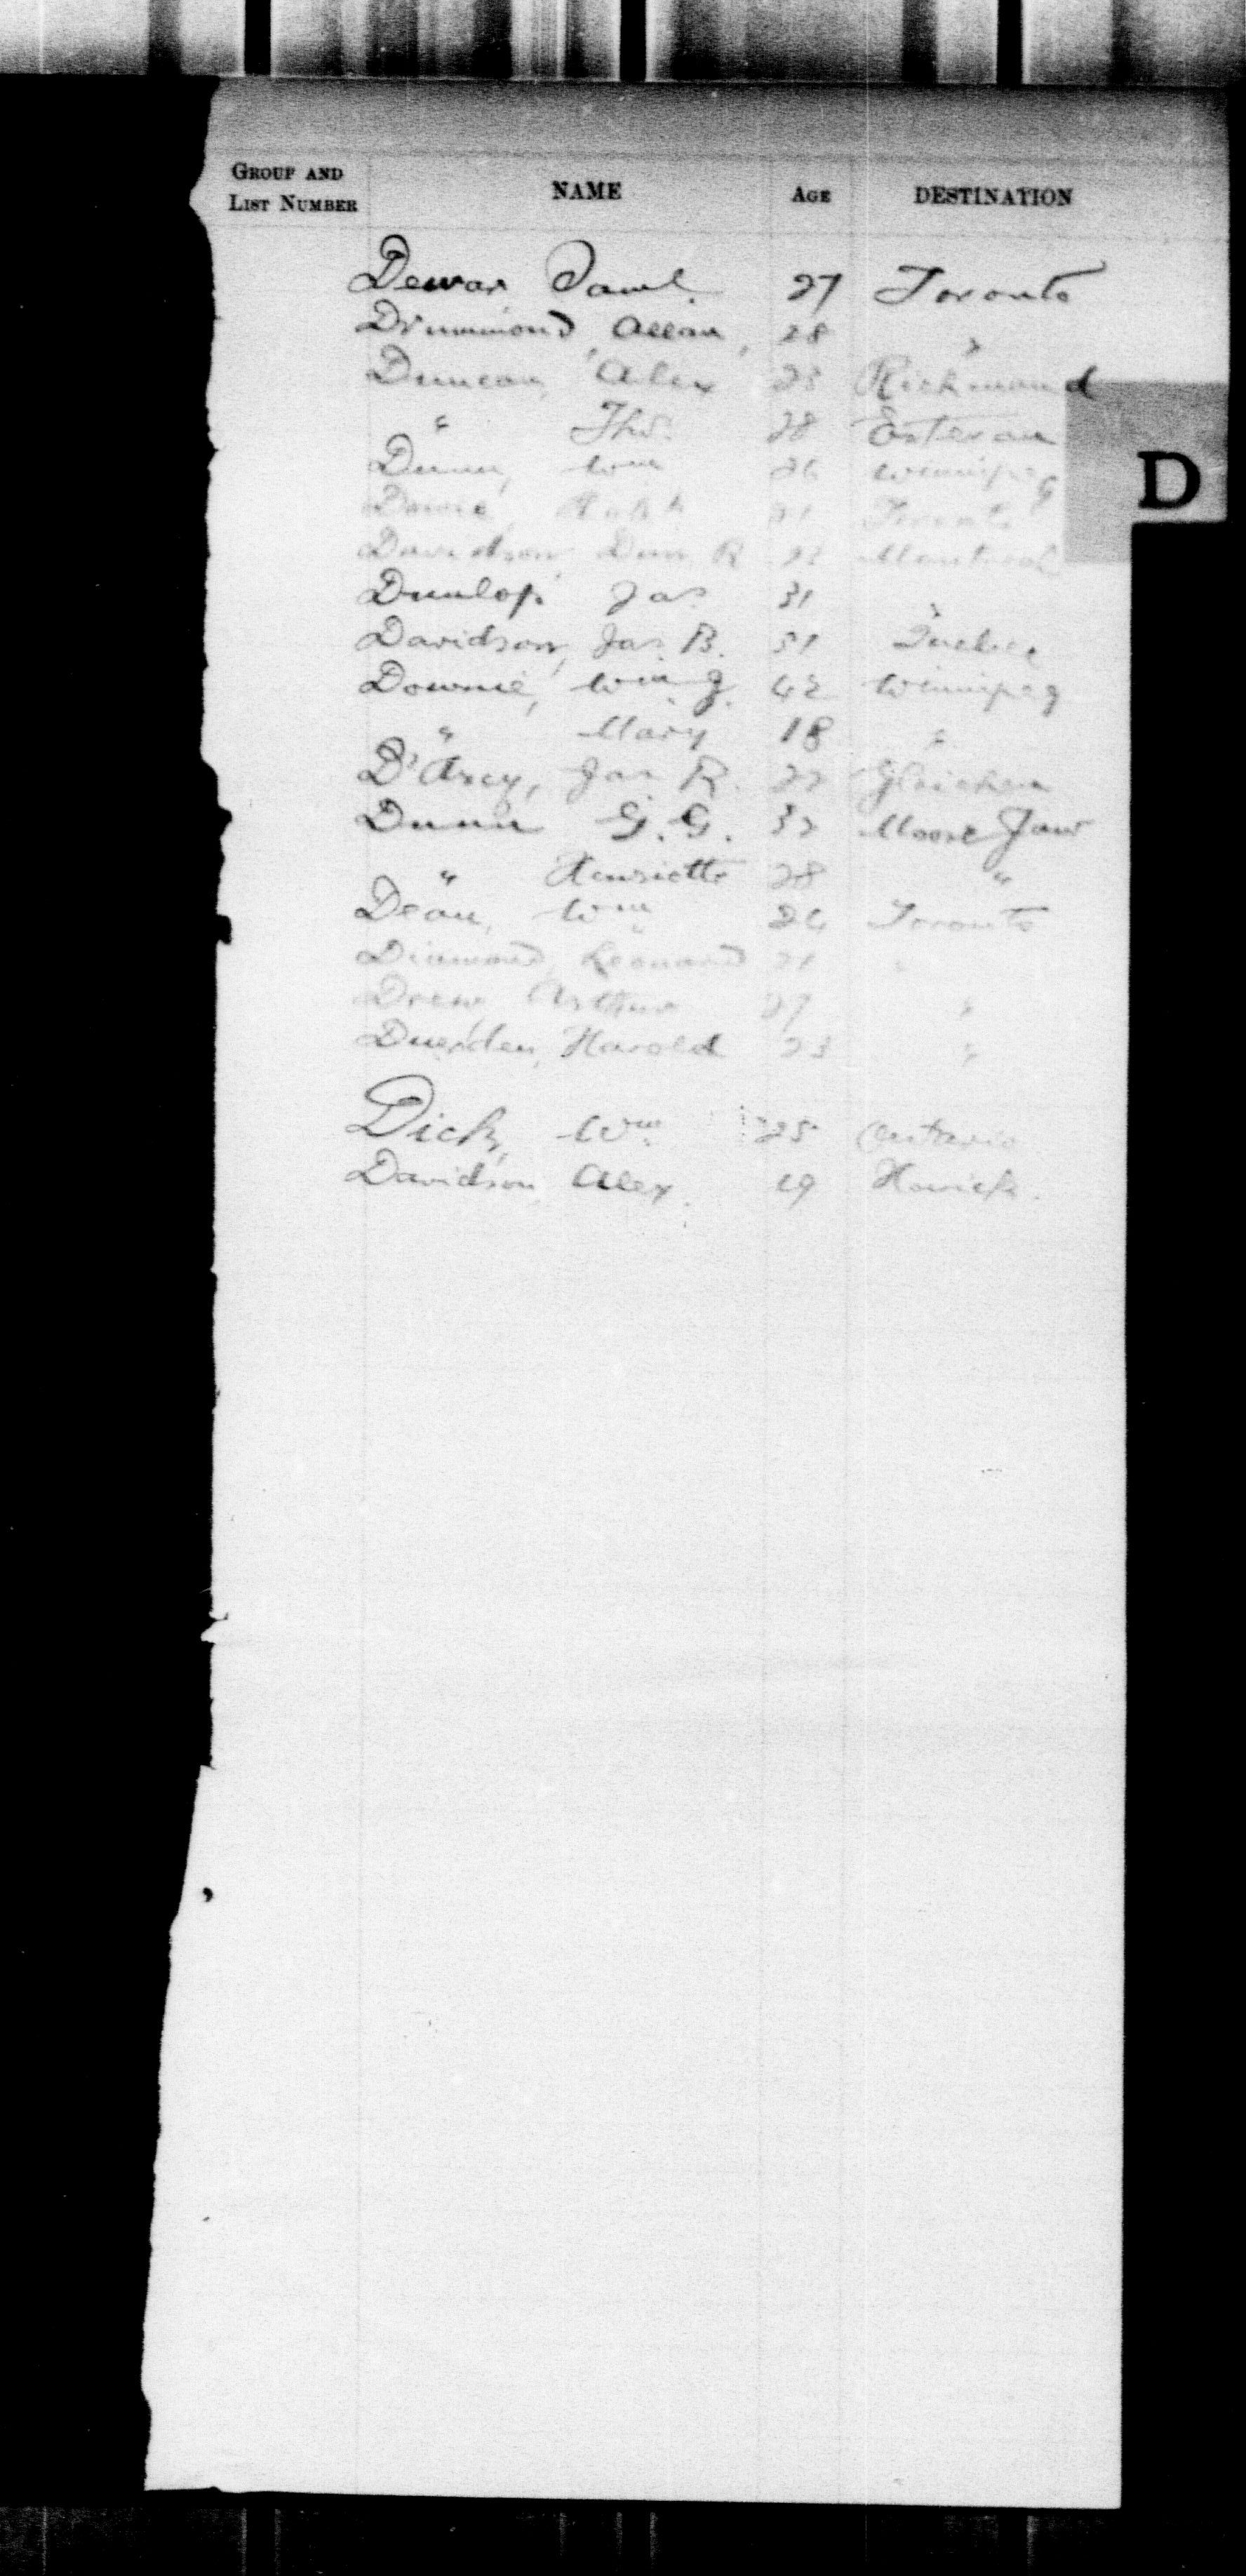 GROUP AND LIST NUMBER NAME AGE DESTINATION
Dewar Saml. 27 Toronto
Drummond, Allan, 28 "
Duncan, Alex 25 Richmond
" Thos. 28 Estevan
D
Dunn, Wm 26 Winnipeg
Ralph 21 Toronto
Davidson, Dun. R 23 Montreal
Dunlop, Jas 31 "
Davidson, Jas. B. 31 Quebec
Downie, Wm J. 42 Winnipeg
" Mary 18 "
D'Arcy, Jas R. 22 Gleichen
Dunn G. G. 32 Moose Jaw
" Henriette 28 "
Dean, Wm 24 Toronto
Diamond, Leonard 21 "
Drew, Arthur 27 "
Duerden, Harold 23 "
Dick, Wm 25 Ontario
Davidson, Alex. 19 Howick.